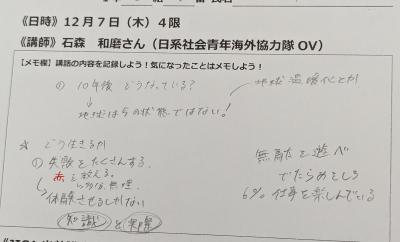 《日時》12月7日（木）4限
《講師》石森　和磨さん（日系社会青年海外協力隊OV）
【メモ欄】講話の内容を記録しよう！気になったことはメモしよう！
① 10年後 どうなっている？
地球温暖化とか
↓
地球は今の状態ではない！
☆ どう生きるか
① 失敗をたくさんする。
赤を教える。
いろいろな無理
↳ 体験させるしかない
知識 と 実際
無駄を遊べ
でたらめをしろ
6% 仕事を楽しんでいる